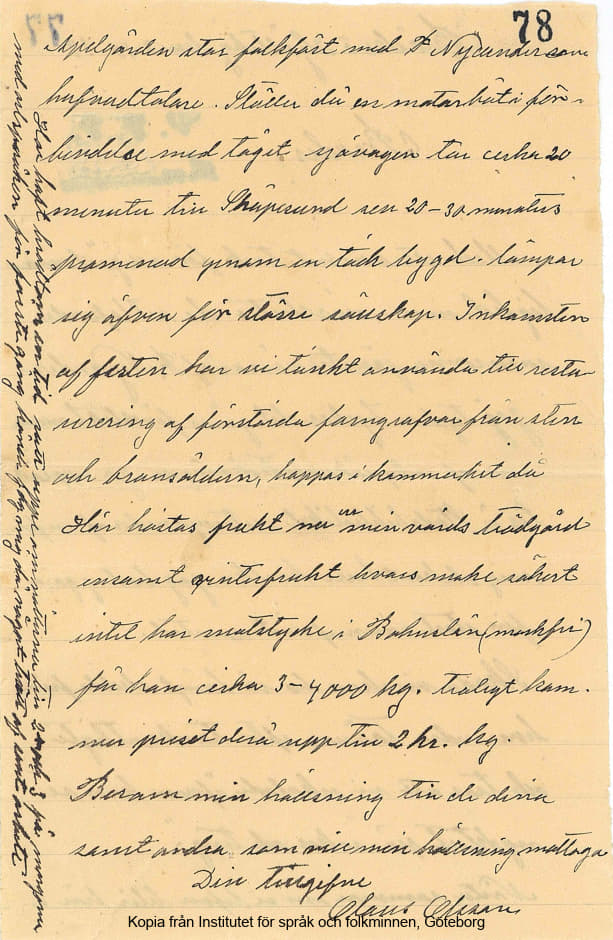 78
Apelgården stor folkfäst med Dr Nylander som
hufvudtalare. Ställer då en motorbåt i för-
bindelse med tåget. sjövägen tar cirka 20
minuter till Skåpesund sen 20-30 minuters
promenad genom en täck bygd. lämpar
sig äfven för större sällskap. Inkomsten
af festen har vi tänkt använda till restau-
urering af förstörda forngrafvar från sten
och bronsåldern, hoppas i kommer hit då
Här höstas frukt nu ur min värds trädgård
ensamt vinterfrukt hvars make säkert
intet har motstycke i Bohuslän (maskfri)
får han cirka 3-4000 kg. troligt kom-
mer priset derå upp till 2 kr. kg.
Beram min hälsning till de dina
samt andra som vill min hälsning mottaga
Din tillgifne
Claus Olsson
Har haft en tid sutit uppe om nätterna till 2 och 3 på morgnarna
med för första gång jag mig då något trött af sånt arbete
Kopia från Institutet för språk och folkminnen, Göteborg